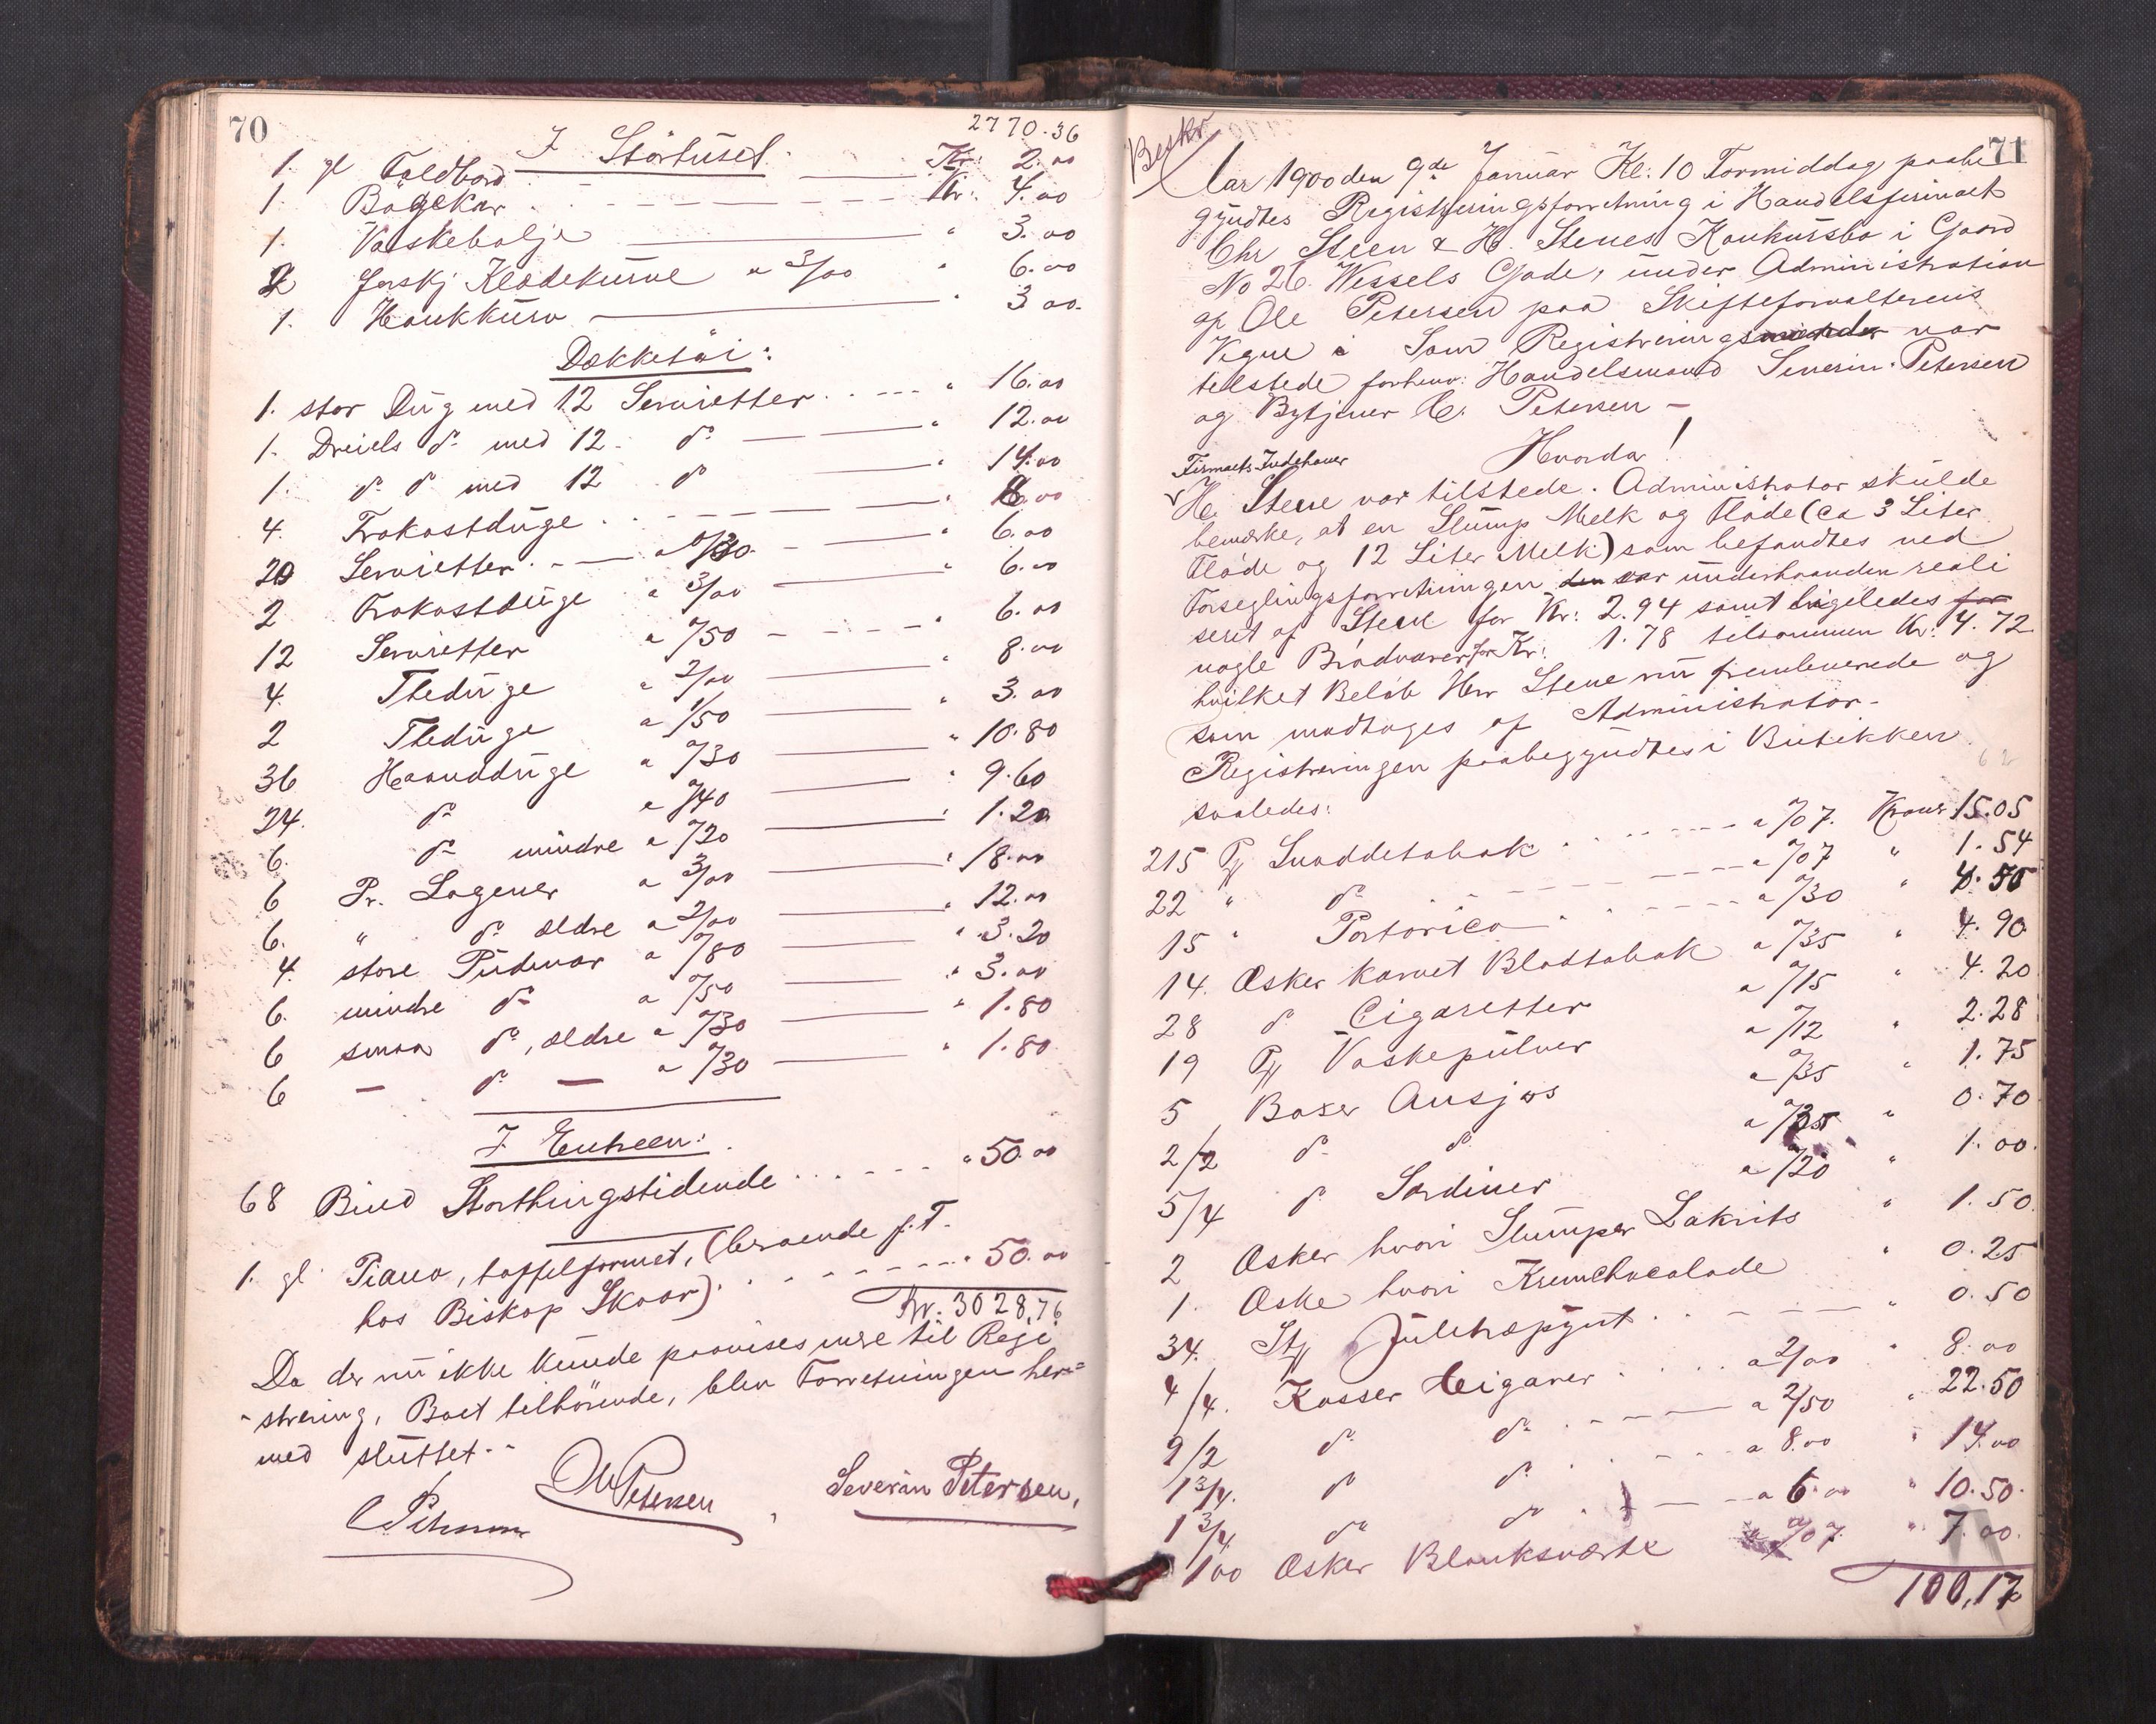 70
2770.36
I Störhuset.
1. gl Foldbord Kr: 2.00
1. Bögekar Kr: 4.00
1. Vaskebalje " 3.00
2 forskj Klædekurve a 3/00 " 6.00
1. Hankkurv " 3 00.
Dækketöi:
1. stor Dug med 12 Servietter " 16.00
1. Dreiels do med 12 do " 12.00
1. do do med 12 do " 14.00
4. Frokostduge " 8.00
20 Servietter a /30 " 6.00
2 Frokostduge a 3/00 " 6.00
12 Servietter a /50 " 6.00
4. Theduge a 2/00 " 8.00
2 Theduge a 1/50 " 3.00
36 Haandduge a /30 " 10.80
24. do a /40 " 9.60
6. do mindre a /20 " 1.20
6 Pr. Lagener a 3/00 " 18.00
6. " do ældre a 2/00 " 12.00
4. store Puder a /80 " 3.20
6. mindre do a /50 " 3.00
6 smaa do, ældre a /30 " 1.80
6 — do — a /30 " 1.80
I Entreen:
68 Bind Storthingstidende " 50.00
1. gl. Piano, taffelformet, (beroende p.T.
hos Biskop Skaar) " 50.00
Kr. 3028,76
Da der nu ikke kunde paavises mere til Regi
strering, Boet tilhörende, blev Forretningen her=
med sluttet.-
C Petersen OlePetersen Severin Petersen,
71
Beskr
Aar 1900 den 9de Januar Kl: 10 Formiddag paabe
gyndtes Registreringsforretning i Handelsfirmaet
Chr Steen & H. Stenes Konkursbo i Gaard
No 26 Wessels Gade, under Administration
af Ole Petersen paa Skifteforvalterens
Vegne. Som Registreringsmænder var
tilstede forhenv: Handelsmand Severin Petersen
og Bytjener C. Petersen —
Hvorda!
Firmaets Indehaver
H. Stene var tilstede. Administrator skulde
bemærke, at en Slump Melk og Flöde (ca 3 Liter
Flöde og 12 Liter Melk) som befandtes ved
Forseglingsforretningen den var underhaanden reali
seret af Stene for Kr: 2.94 samt ligeledes for
nogle Brödvarer for Kr: 1.78 tilsammen Kr: 4.72
hvilket Belöb Herr Stene nu fremleverede og
som modtages af Administrator.-
Registreringen paabegyndtes i Butikken
saaledes:
215 Pk Snaddetobak a /07. Kroner 15.05
22 " do a /07 " 1.54
15 " Portorico a /30 " 4.50
14. Æsker karvet Bladtobak a /35 " 4.90
28 do Cigaretter a /15 " 4.20
19 Pk Vaskepulver a /12 " 2.28
5 Boxer Ansjos a /35 " 1.75
2/2 do do a /35 " 0.70
5/4 do Sardiner a /20 " 1.00.
2 Æsker hvori Slumper Lakrits " 1.50.
1. Æske hvori Kremchocolade " 0.25
34. Stk Juletræpynt " 0.50
4/4. Kasser Cigarer a 2/00 " 8.00
9/2 do do a 2/50 " 22.50
1 3/4. do do a 8.00 " 14.00
1 3/4 do do a 6.00 " 10.50.
100 Æsker Blanksværte a /07. " 7.00.
100,17